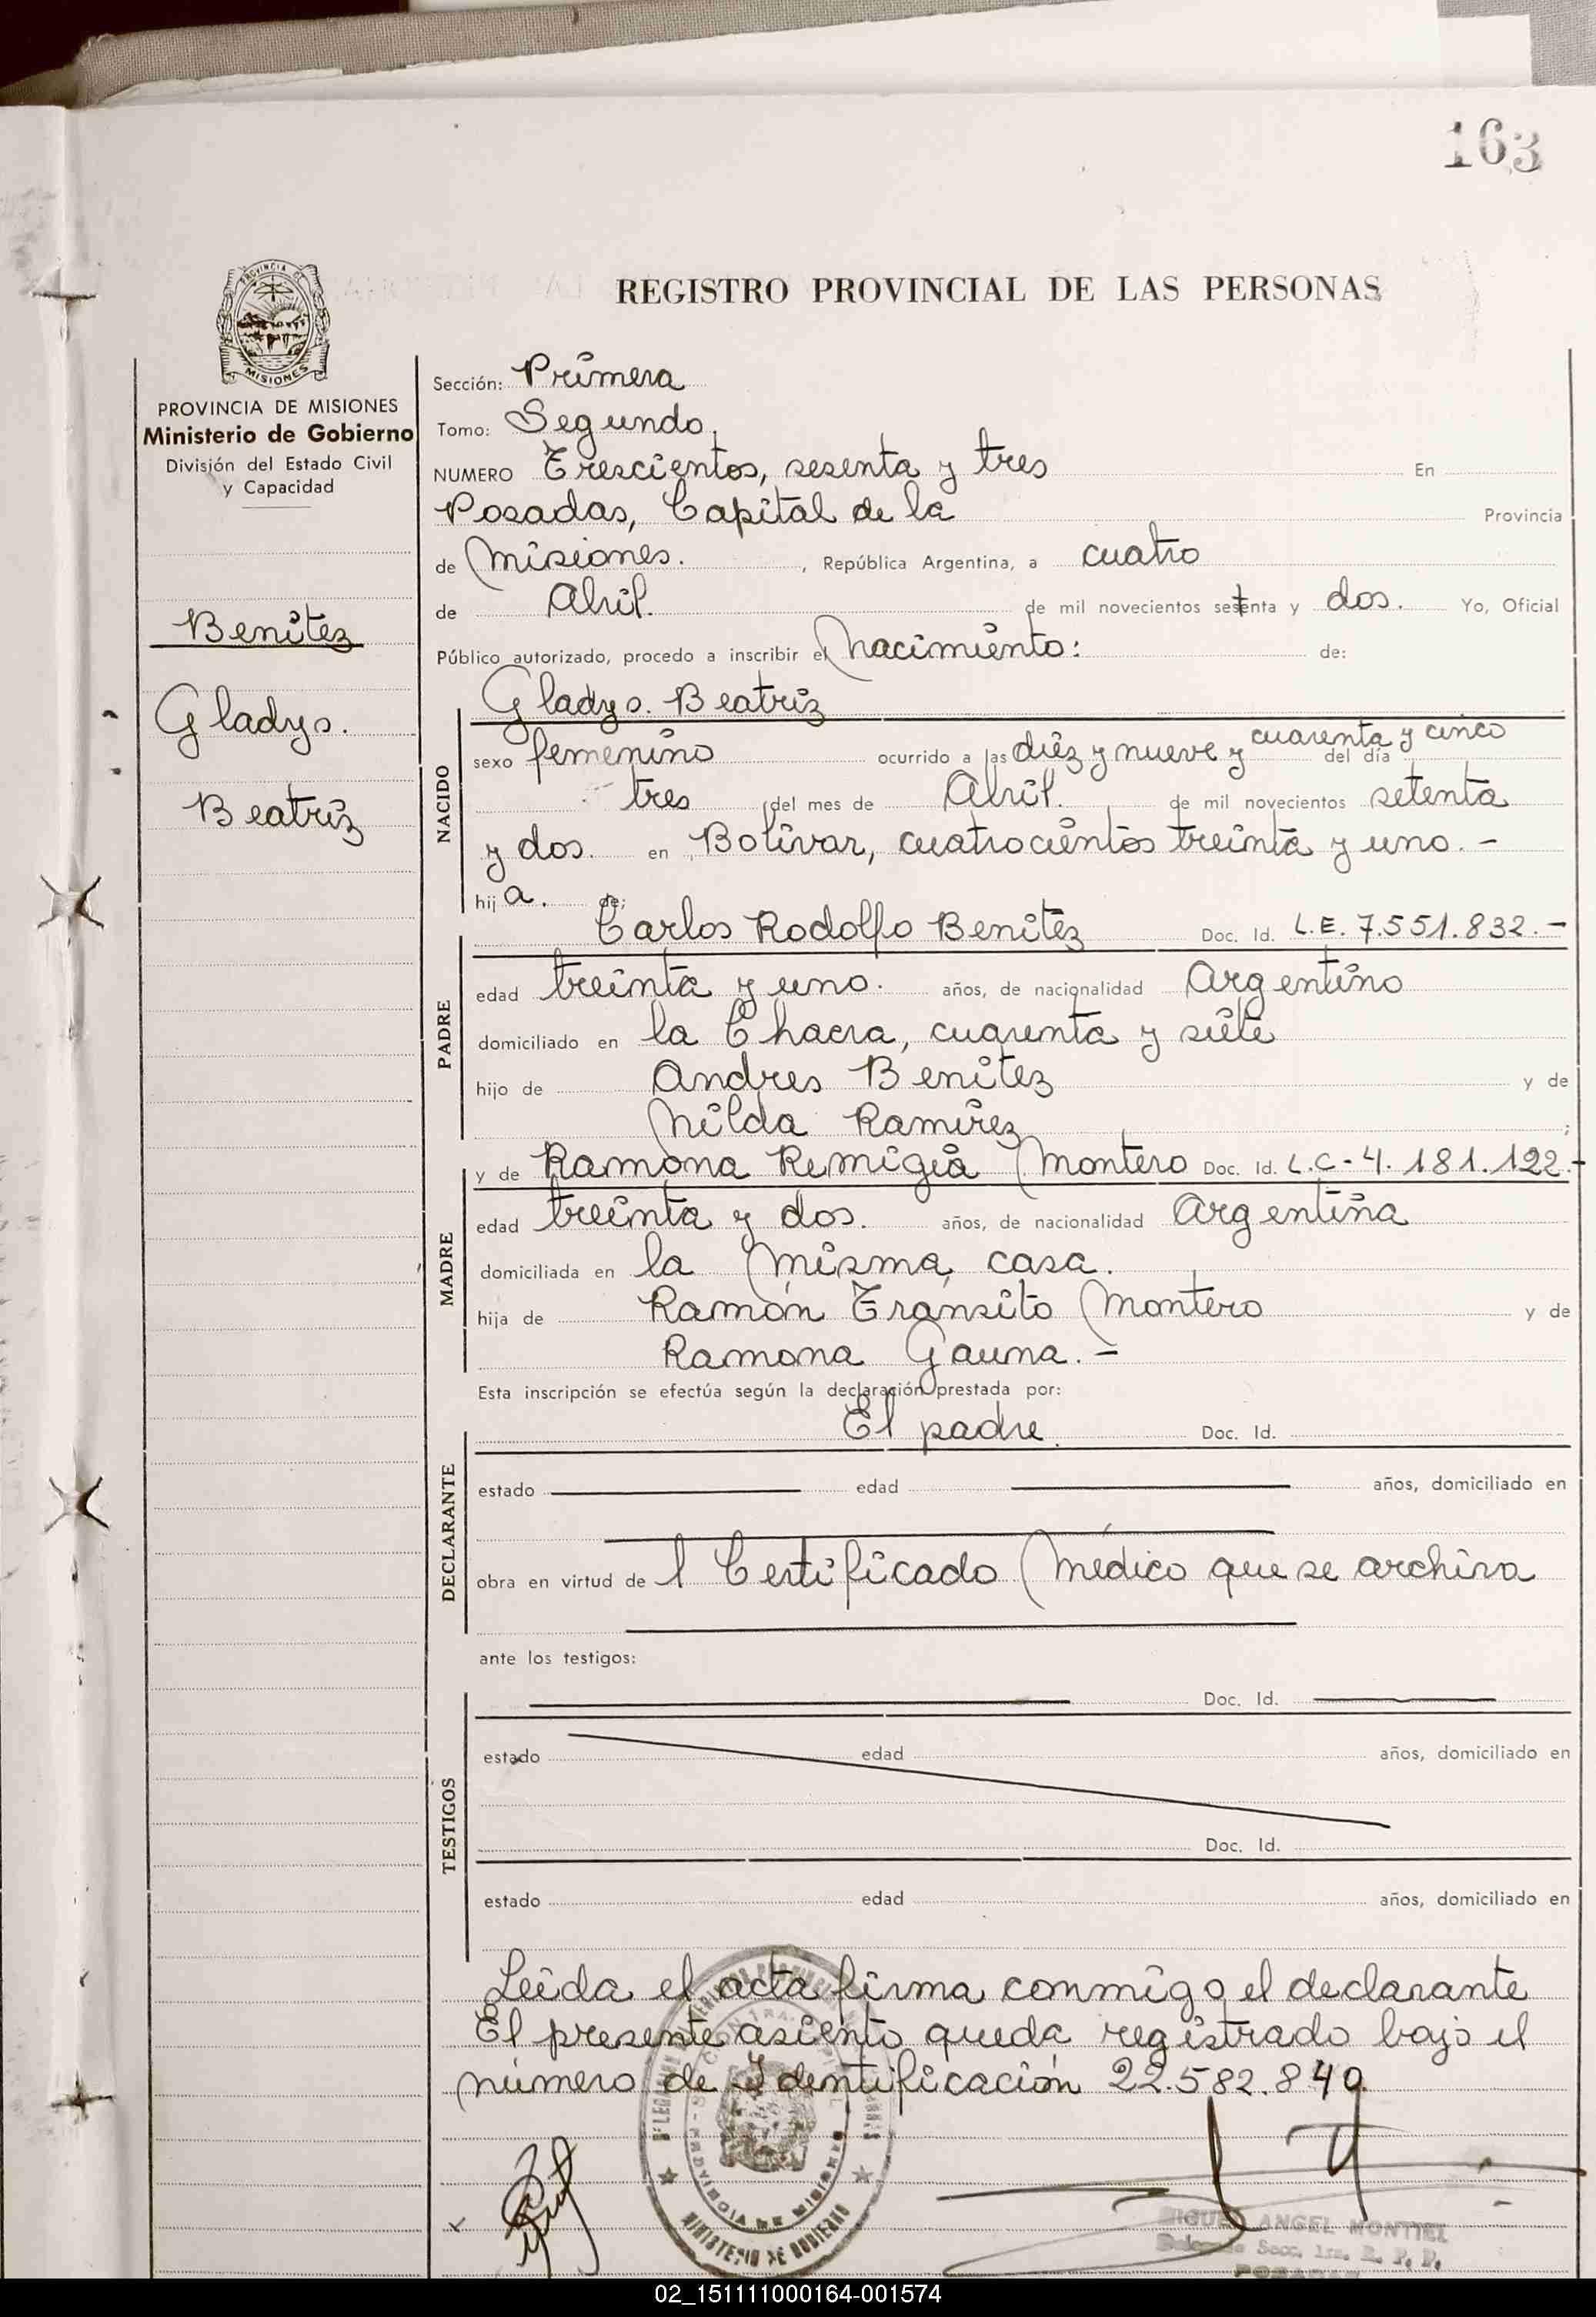 163
REGISTRO PROVINCIAL DE LAS PERSONAS
PROVINCIA DE MISIONES
Ministerio de Gobierno
División del Estado Civil
y Capacidad
Benitez
Gladys.
Beatriz
Sección: Primera
Tomo: Segundo.
NUMERO Trescientos, sesenta y tres En
Posadas, Capital de la Provincia
de Misiones. , República Argentina, a cuatro
de Abril. de mil novecientos setenta y dos. Yo, Oficial
Público autorizado, procedo a inscribir el Nacimiento: de:
Gladys. Beatriz
NACIDO
sexo femenino ocurrido a las diez y nueve y cuarenta y cinco del día
tres del mes de Abril. de mil novecientos setenta
y dos. en Bolivar, cuatrocientos treinta y uno. -
hij a. de:
Carlos Rodolfo Benitez Doc. Id. L.E. 7.551.832.-
PADRE
edad treinta y uno. años, de nacionalidad Argentino
domiciliado en la Chacra, cuarenta y siete
hijo de Andres Benitez y de
Nilda Ramirez ;
y de Ramona Remigia Montero Doc. Id. L.C-4.181.122.-
MADRE
edad treinta y dos. años, de nacionalidad Argentina
domiciliada en la misma casa.
hija de Ramón Tránsito Montero y de
Ramona Gauna. -
Esta inscripción se efectúa según la declaración prestada por:
El padre. Doc. Id.
DECLARANTE
estado edad años, domiciliado en
obra en virtud de l Certificado Médico que se archiva
ante los testigos:
Doc. Id.
TESTIGOS
estado edad años, domiciliado en
Doc. Id.
estado edad años, domiciliado en
Leida el acta firma conmigo el declarante
El presente asiento queda registrado bajo el
número de Identificación 22.582.849.
MINISTERIO DE GOBIERNO
PROVINCIA DE MISIONES
MIGUEL ANGEL MONTIEL
Secc. 1ra. R. P. P.
POSADAS
02_151111000164-001574